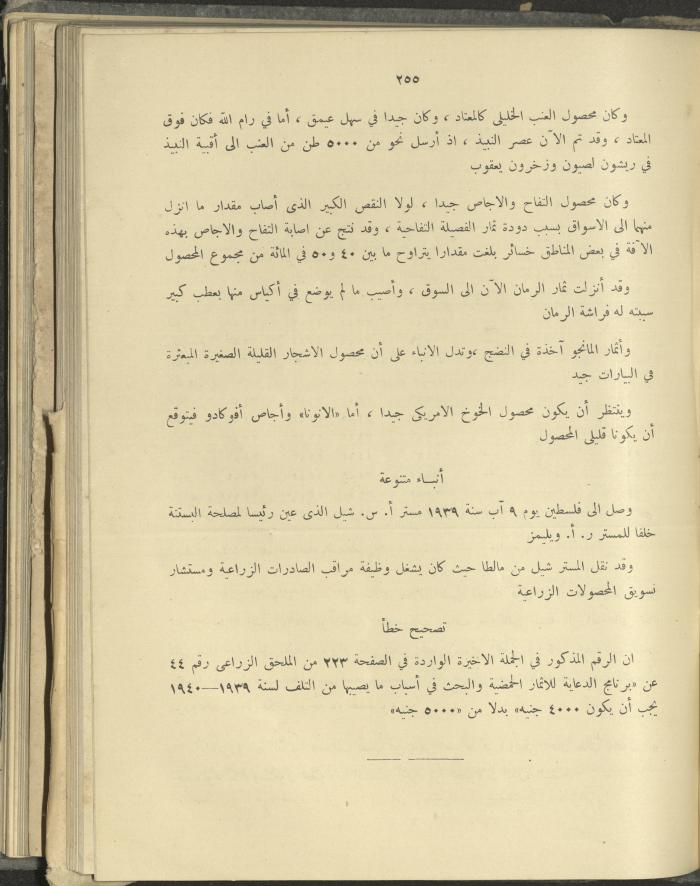 ٢٥٥
وكان محصول العنب الخليلى كالمعتاد ، وكان جيدا في سهل عيمق ، أما في رام الله فكان فوق
المعتاد ، وقد تم الآن عصر النبيذ ، اذ أرسل نحو من ٥٠٠٠ طن من العنب الى أقبية النبيذ
في ريشون لصيون وزخرون يعقوب
وكان محصول التفاح والاجاص جيدا ، لولا النقص الكبير الذى أصاب مقدار ما انزل
منهما الى الاسواق بسبب دودة ثمار الفصيلة التفاحية ، وقد نتج عن اصابة التفاح والاجاص بهذه
الآفة في بعض المناطق خسائر بلغت مقدارا يتراوح ما بين ٤٠ و٥٠ في المائة من مجموع المحصول
وقد أنزلت ثمار الرمان الآن الى السوق ، وأصيب ما لم يوضع في أكياس منها بعطب كبير
سببته له فراشة الرمان
وأثمار المانجو آخذة في النضج ،وتدل الانباء على أن محصول الاشجار القليلة الصغيرة المبعثرة
في البيارات جيد
وينتظر أن يكون محصول الخوخ الامريكى جيدا ، أما «الانونا» وأجاص أفوكادو فيتوقع
أن يكونا قليلى المحصول
أنبـاء متنوعة
وصل الى فلسطين يوم ٩ آب سنة ١٩٣٩ مستر أ. س. شيل الذى عين رئيسا لمصلحة البستنة
خلفا للمستر ر. أ. ويليمز
وقد نقل المستر شيل من مالطا حيث كان يشغل وظيفة مراقب الصادرات الزراعية ومستشار
تسويق المحصولات الزراعية
تصحيح خطأ
ان الرقم المذكور في الجملة الاخيرة الواردة في الصفحة ٢٢٣ من الملحق الزراعى رقم ٤٤
عن «برنامج الدعاية للاثمار الحمضية والبحث في أسباب ما يصيبها من التلف لسنة ١٩٣٩—١٩٤٠
يجب أن يكون ٤٠٠٠ جنيه» بدلا من «٥٠٠٠ جنيه»